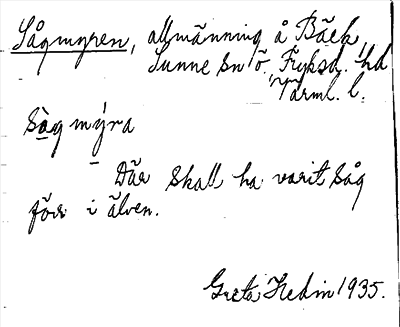 Sågmyren, allmänning å Bäck,
Sunne sn Ö. Fryksd. hd
Värml. l.
Såg mýra
Där skall ha varit såg
förr i älven.
Greta Hedin 1935.